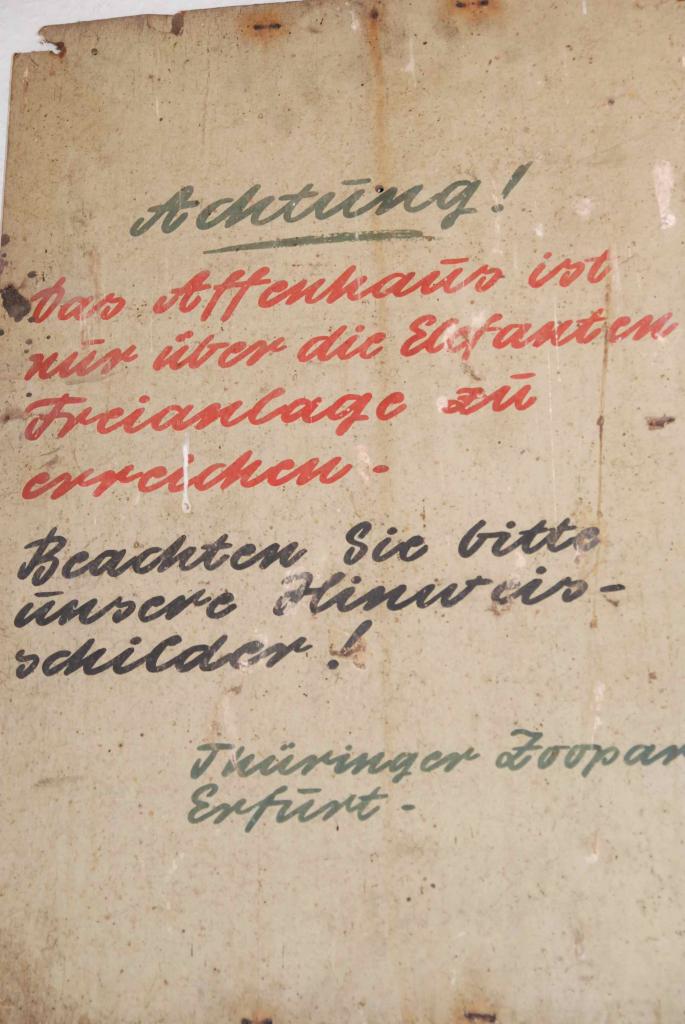 Achtung!
Das Affenhaus ist
nur über die Elefanten
Freianlage zu
erreichen.
Beachten Sie bitte
unsere Hinweis-
schilder!
Thüringer Zoopar
Erfurt.